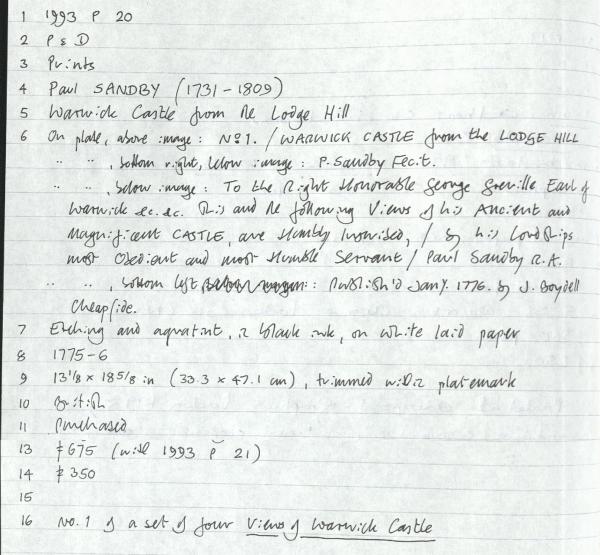 1 1993 P 20
2 P & D
3 Prints
4 Paul SANDBY (1731-1809)
5 Warwick Castle from the Lodge Hill
6 On plate, above image: No 1. / WARWICK CASTLE from the LODGE HILL
" " , bottom right, below image: P. Sandby Fecit.
" " , below image: To the Right Honorable George Greville Earl of
Warwick &c. &c. This and the following Views of his Ancient and
Magnificent CASTLE, are Humbly Inscribed, / by his Lordships
most Obedient and most Humble Servant / Paul Sandby R.A.
" " , bottom left : Publish'd Jany. 1776. by J. Boydell
Cheapside.
7 Etching and aquatint, in black ink, on white laid paper
8 1775-6
9 13 1/8 x 18 5/8 in (33.3 x 47.1 cm), trimmed within platemark
10 British
11 Purchased
13 £675 (with 1993 P 21)
14 £350
15
16 No. 1 of a set of four Views of Warwick Castle